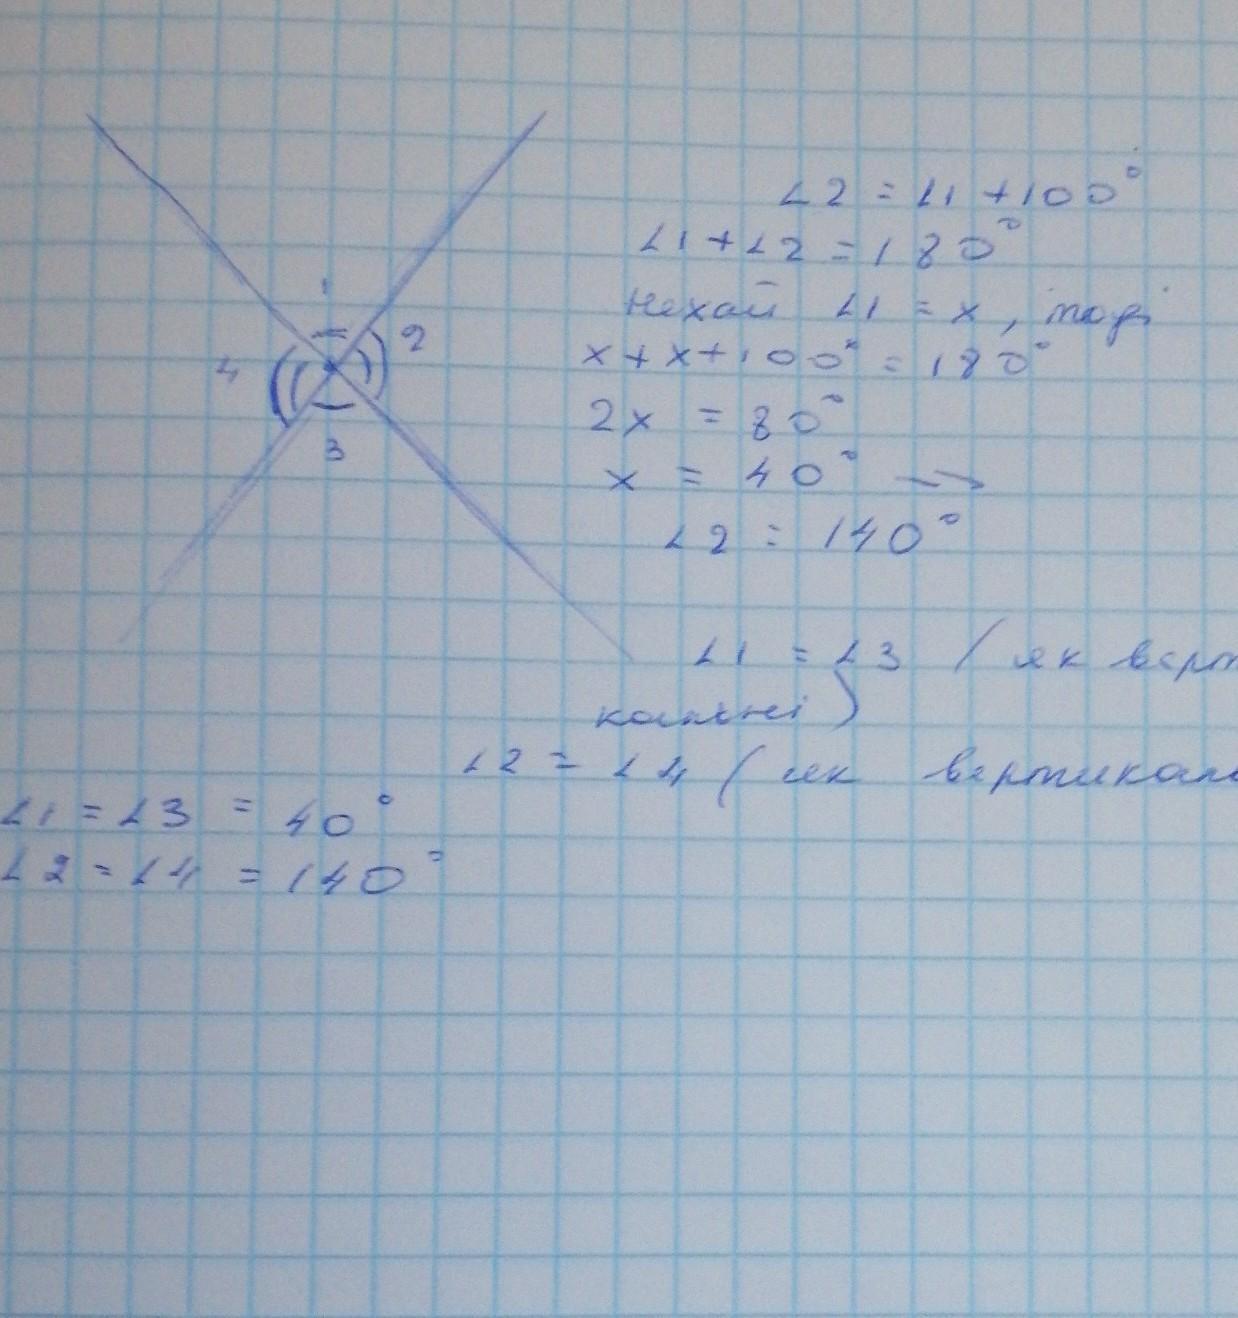 1
2
4
3
∠2 = ∠1 + 100°
∠1 + ∠2 = 180°
Нехай ∠1 = x, тоді
x + x + 100° = 180°
2x = 80°
x = 40° →
∠2 = 140°
∠1 = ∠3 (як верти
кальні)
∠2 = ∠4 (як вертикаль
∠1 = ∠3 = 40°
∠2 = ∠4 = 140°